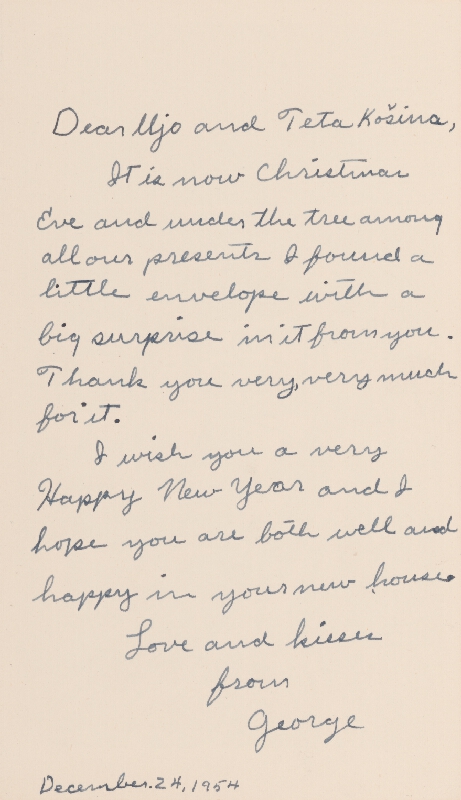 Dear Ujo and Teta Košina,
It is now Christmas
Eve and under the tree among
all our presents I found a
little envelope with a
big surprise in it from you.
Thank you very, very much
for it.
I wish you a very
Happy New Year and I
hope you are both well and
happy in your new house.
Love and kisses
from
George
December. 24, 1954